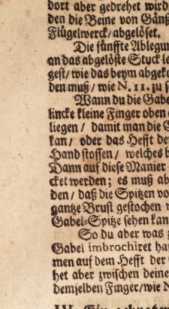 dort aber gedrehet wird
den die Beine von Gänß
Flügelwerck/abgelöset.
Die fünffte Ablegun
an das abgelöste Stuck le
gest/wie das beym abgek
den muß/wie N. 11. zu s
Wann du die Gabe
lincke kleine Finger oben
liegen / damit man die G
kan / oder das Hefft de
Hand stossen / welches b
Dann auf diese Manier
cket werden; es muß ab
den/ daß die Spitzen vo
gantze Brust gestochen
Gabel-Spitze sehen kan
So du aber was
Gabel imbrochiret ha
men auf dem Hefft der
het aber zwischen deine
demselben Finger/wie N